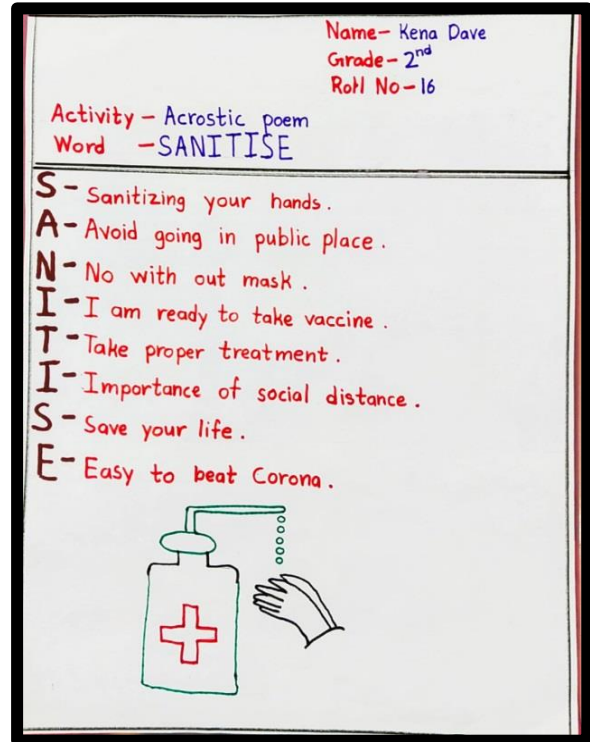 Name- Kena Dave
Grade- 2nd
Roll No-16
Activity - Acrostic poem
Word - SANITISE
S- Sanitizing your hands.
A- Avoid going in public place.
N- No with out mask.
I- I am ready to take vaccine.
T- Take proper treatment.
I- Importance of social distance.
S- Save your life.
E- Easy to beat Corona.